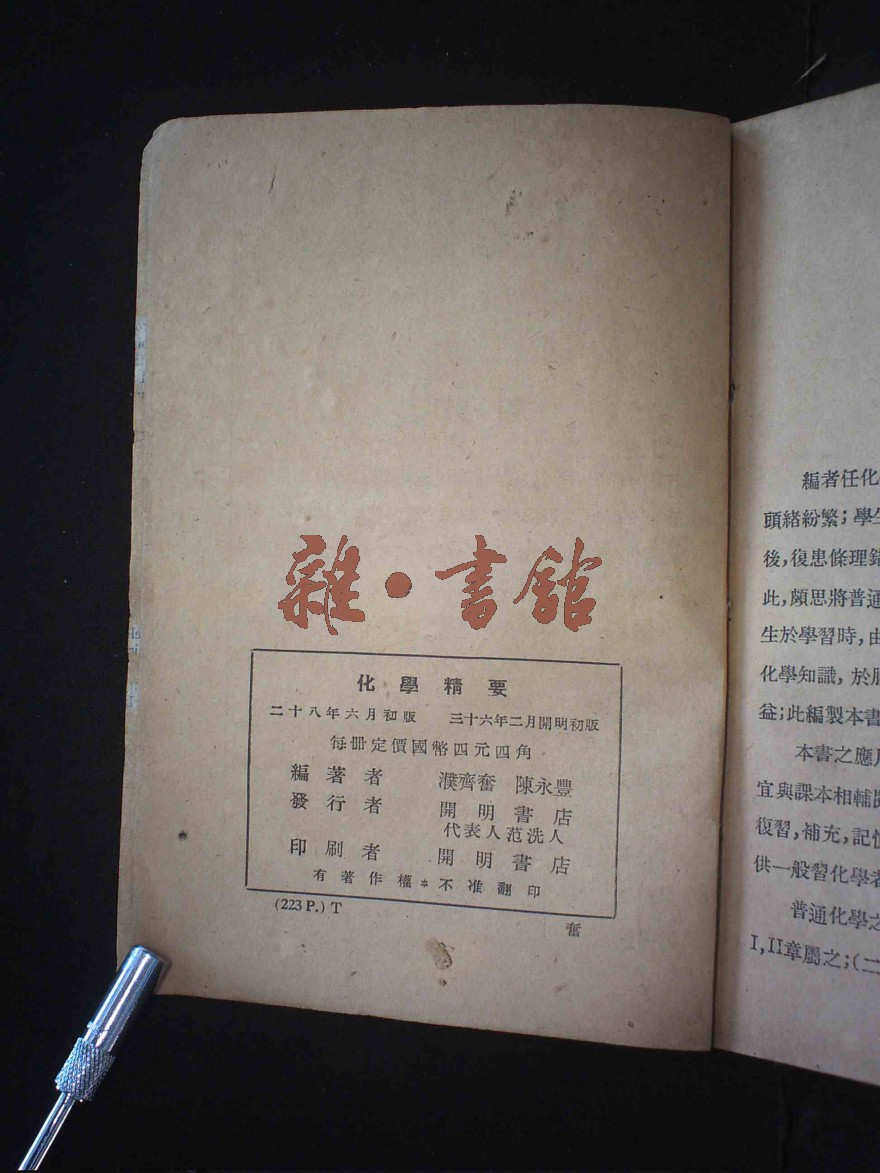 雜·書館
化學精要
二十八年六月初版 三十六年二月開明初版
每冊定價國幣四元四角
編著者 濮齊奮 陳永豐
發行者 開明書店
代表人范洗人
印刷者 開明書店
有著作權*不准翻印
(223 P.) T
奮
編者任化
頭緒紛繁；學生
後，復患條理錯
此，頗思將普通
生於學習時，由
化學知識，於
益；此編製本書
本書之應用
宜與課本相輔
復習，補充，記憶
供一般習化學者
普通化學之
I,II章屬之；(二